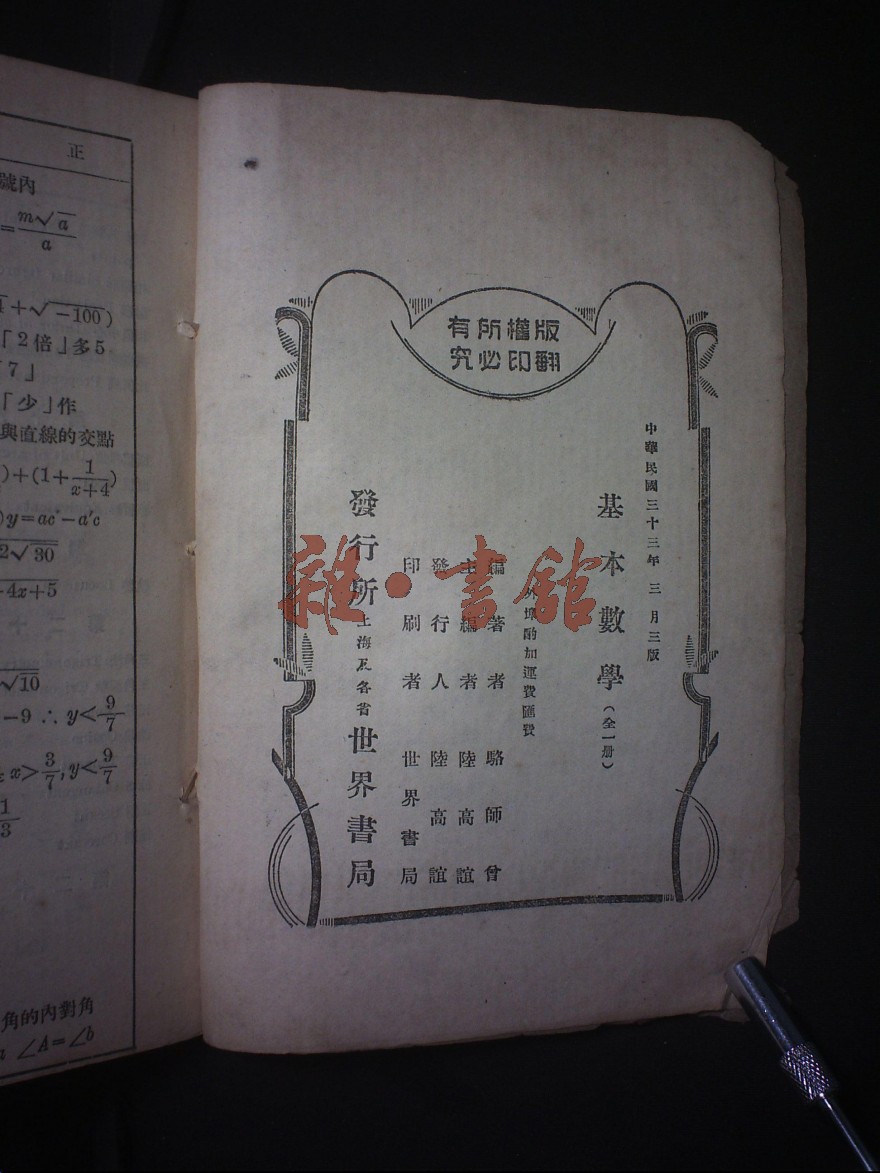 版權所有
翻印必究
中華民國三十三年三月三版
基本數學(全一册)
外埠酌加運費匯費
編著者 駱師曾
主編者 陸高誼
發行人 陸高誼
印刷者 世界書局
發行所 上海及各省 世界書局
雜·書館
正
號內
=m√a/a
+√-100)
「2倍」多5
7」
「少」作
與直線的交點
)+(1+1/x+4)
)y=ac-a′c
2√30
-4x+5
√10
-9 ∴ y<9/7
x>3/7,y<9/7
1/3
角的內對角
∠A=∠b